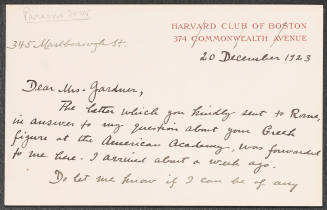 Parsons
HARVARD CLUB OF BOSTON
374 COMMONWEALTH AVENUE
345 Marlborough St.
20 December 1923
Dear Mrs. Gardner,
The letter which you kindly sent to Rome,
in answer to my question about your Greek
figure at the American Academy, was forwarded
to me here. I arrived about a week ago.
Do let me know if I can be of any